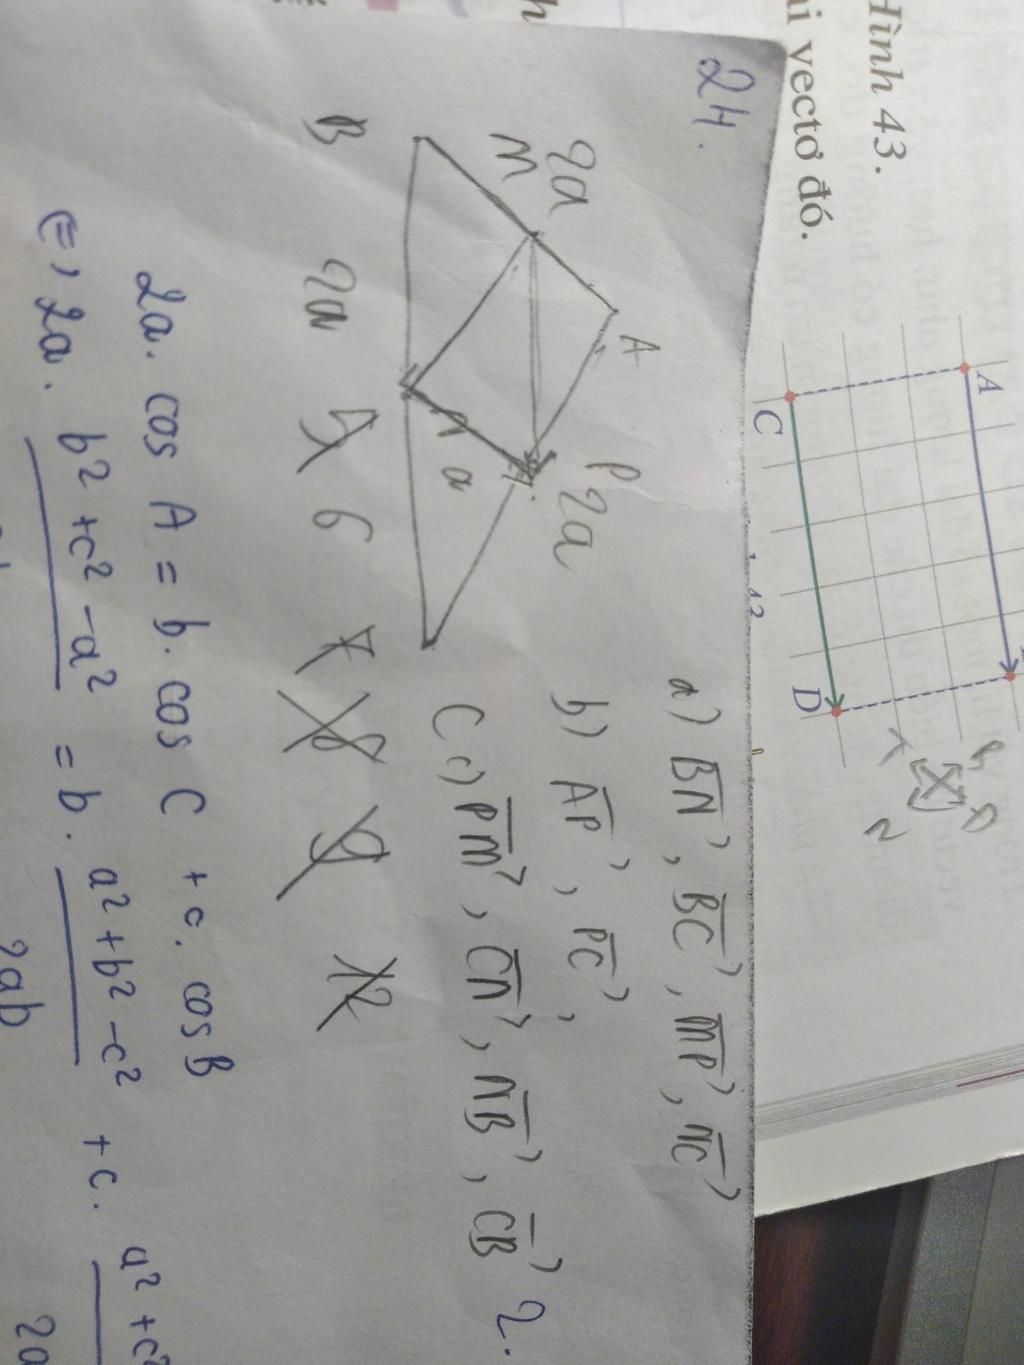 Hình 43.
ai vectơ đó.
A
C
D
24.
2a
M
A
P
2a
B
2a
a
6
a) BN, BC, MP, NC
b) AP, PC,
C
c) PM, CN, NB, CB
2.
2a. cos A = b. cos C + c. cosB
2a. b² + c² - a² = b. a² + b² - c² + c. a² + c²
2ab
2a